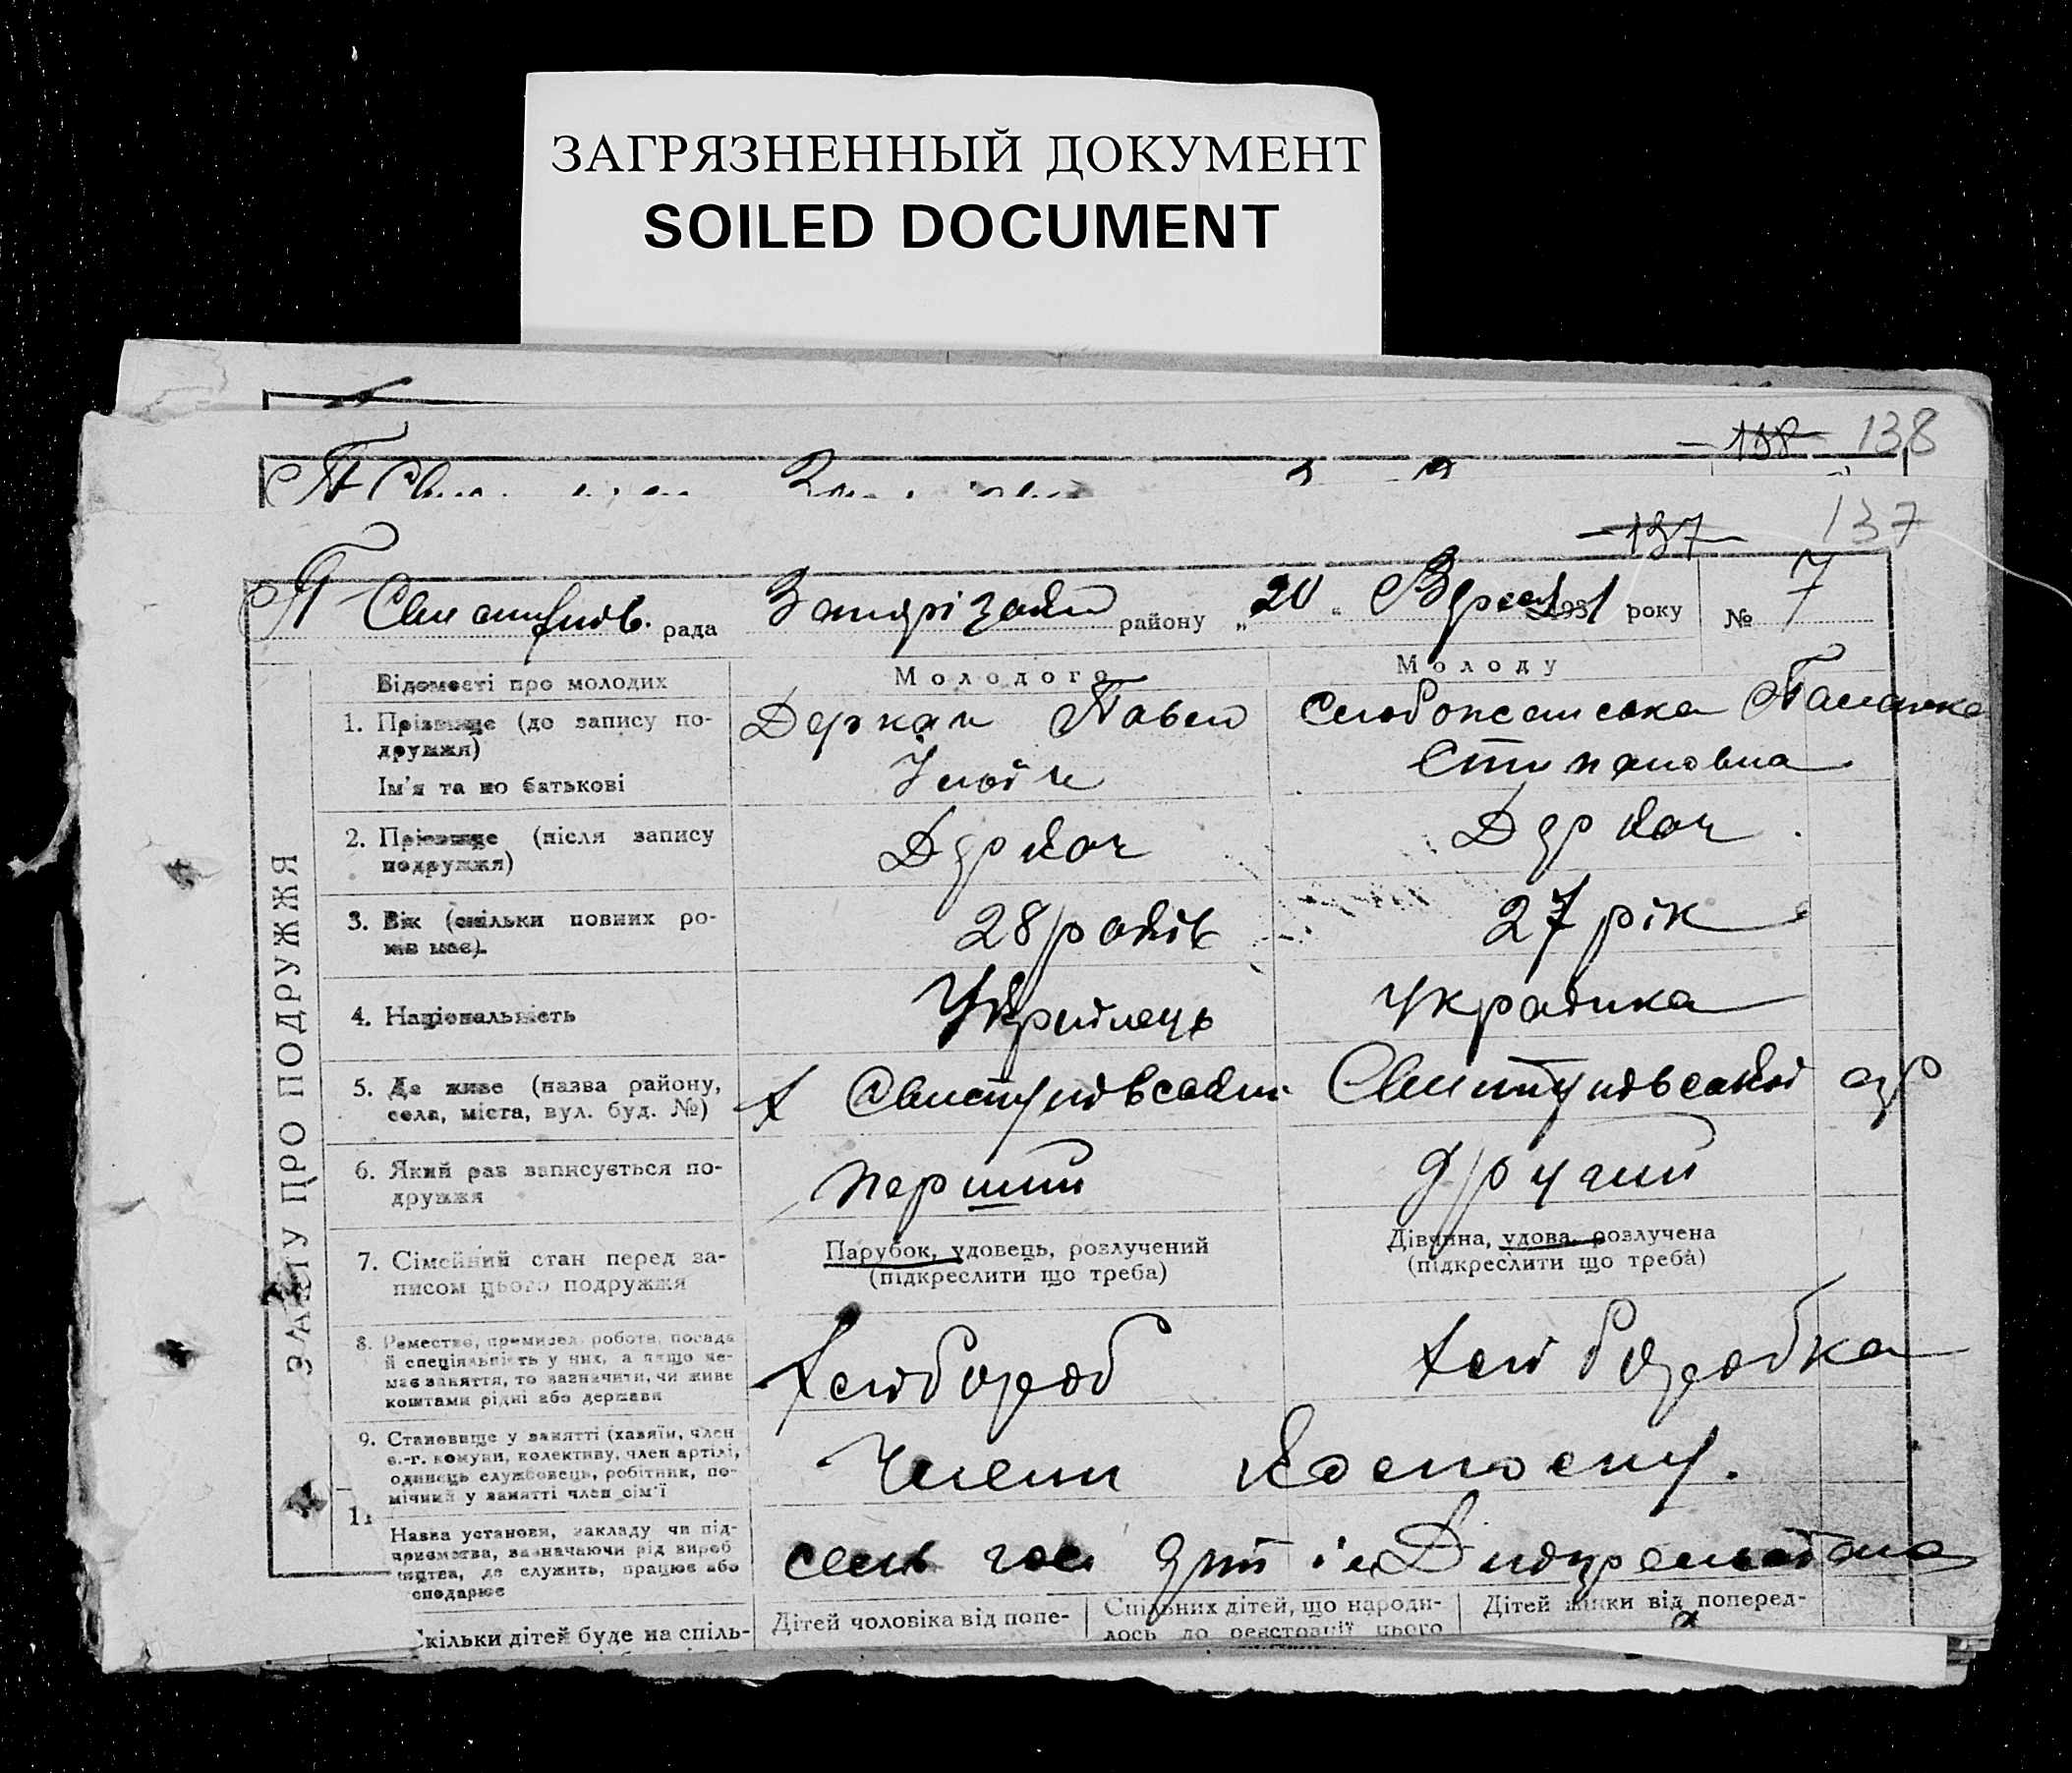 ЗАГРЯЗНЕННЫЙ ДОКУМЕНТ
SOILED DOCUMENT
138 138
137 137
рада району „20“ 1931 року № 7
ЗАПИСУ ПРО ПОДРУЖЖЯ
Відомості про молодих
Молодого
Молоду
1. Прізвище (до запису по-
дружжя)
Ім'я та по батькові
Деркач Павло
Степановна
2. Прізвище (після запису
подружжя)
Деркач
Деркач
3. Вік (скільки повних ро-
ків має).
28 років
27 рік
4. Національність
Українець
Українка
5. Де живе (назва району,
села, міста, вул. буд. №)
х Свистунівський
Свистунівській
6. Який раз записується по-
дружжя
перший
другий
7. Сімейний стан перед за-
писом цього подружжя
Парубок, удовець, розлучений
(підкреслити що треба)
Дівчина, удова, розлучена
(підкреслити що треба)
8. Ремество, промисел, робота, посада
й спеціяльність у них, а якщо не-
має заняття, то зазначити, чи живе
коштами рідні або держави
Хлібороб
Хліборобка
9. Становище у занятті (хазяїн, член
с.-г. комуни, колективу, член артілі,
одинець службовець, робітник, по-
мічний у занятті член сім'ї
Член
Назва установи, закладу чи під-
приємства, зазначаючи рід вироб
ництва, де служить, працює або
сподарює
Скільки дітей буде на спіль-
Дітей чоловіка від попе-
Спільних дітей, що народи-
лось до реєстрації цього
Дітей жінки від поперед-